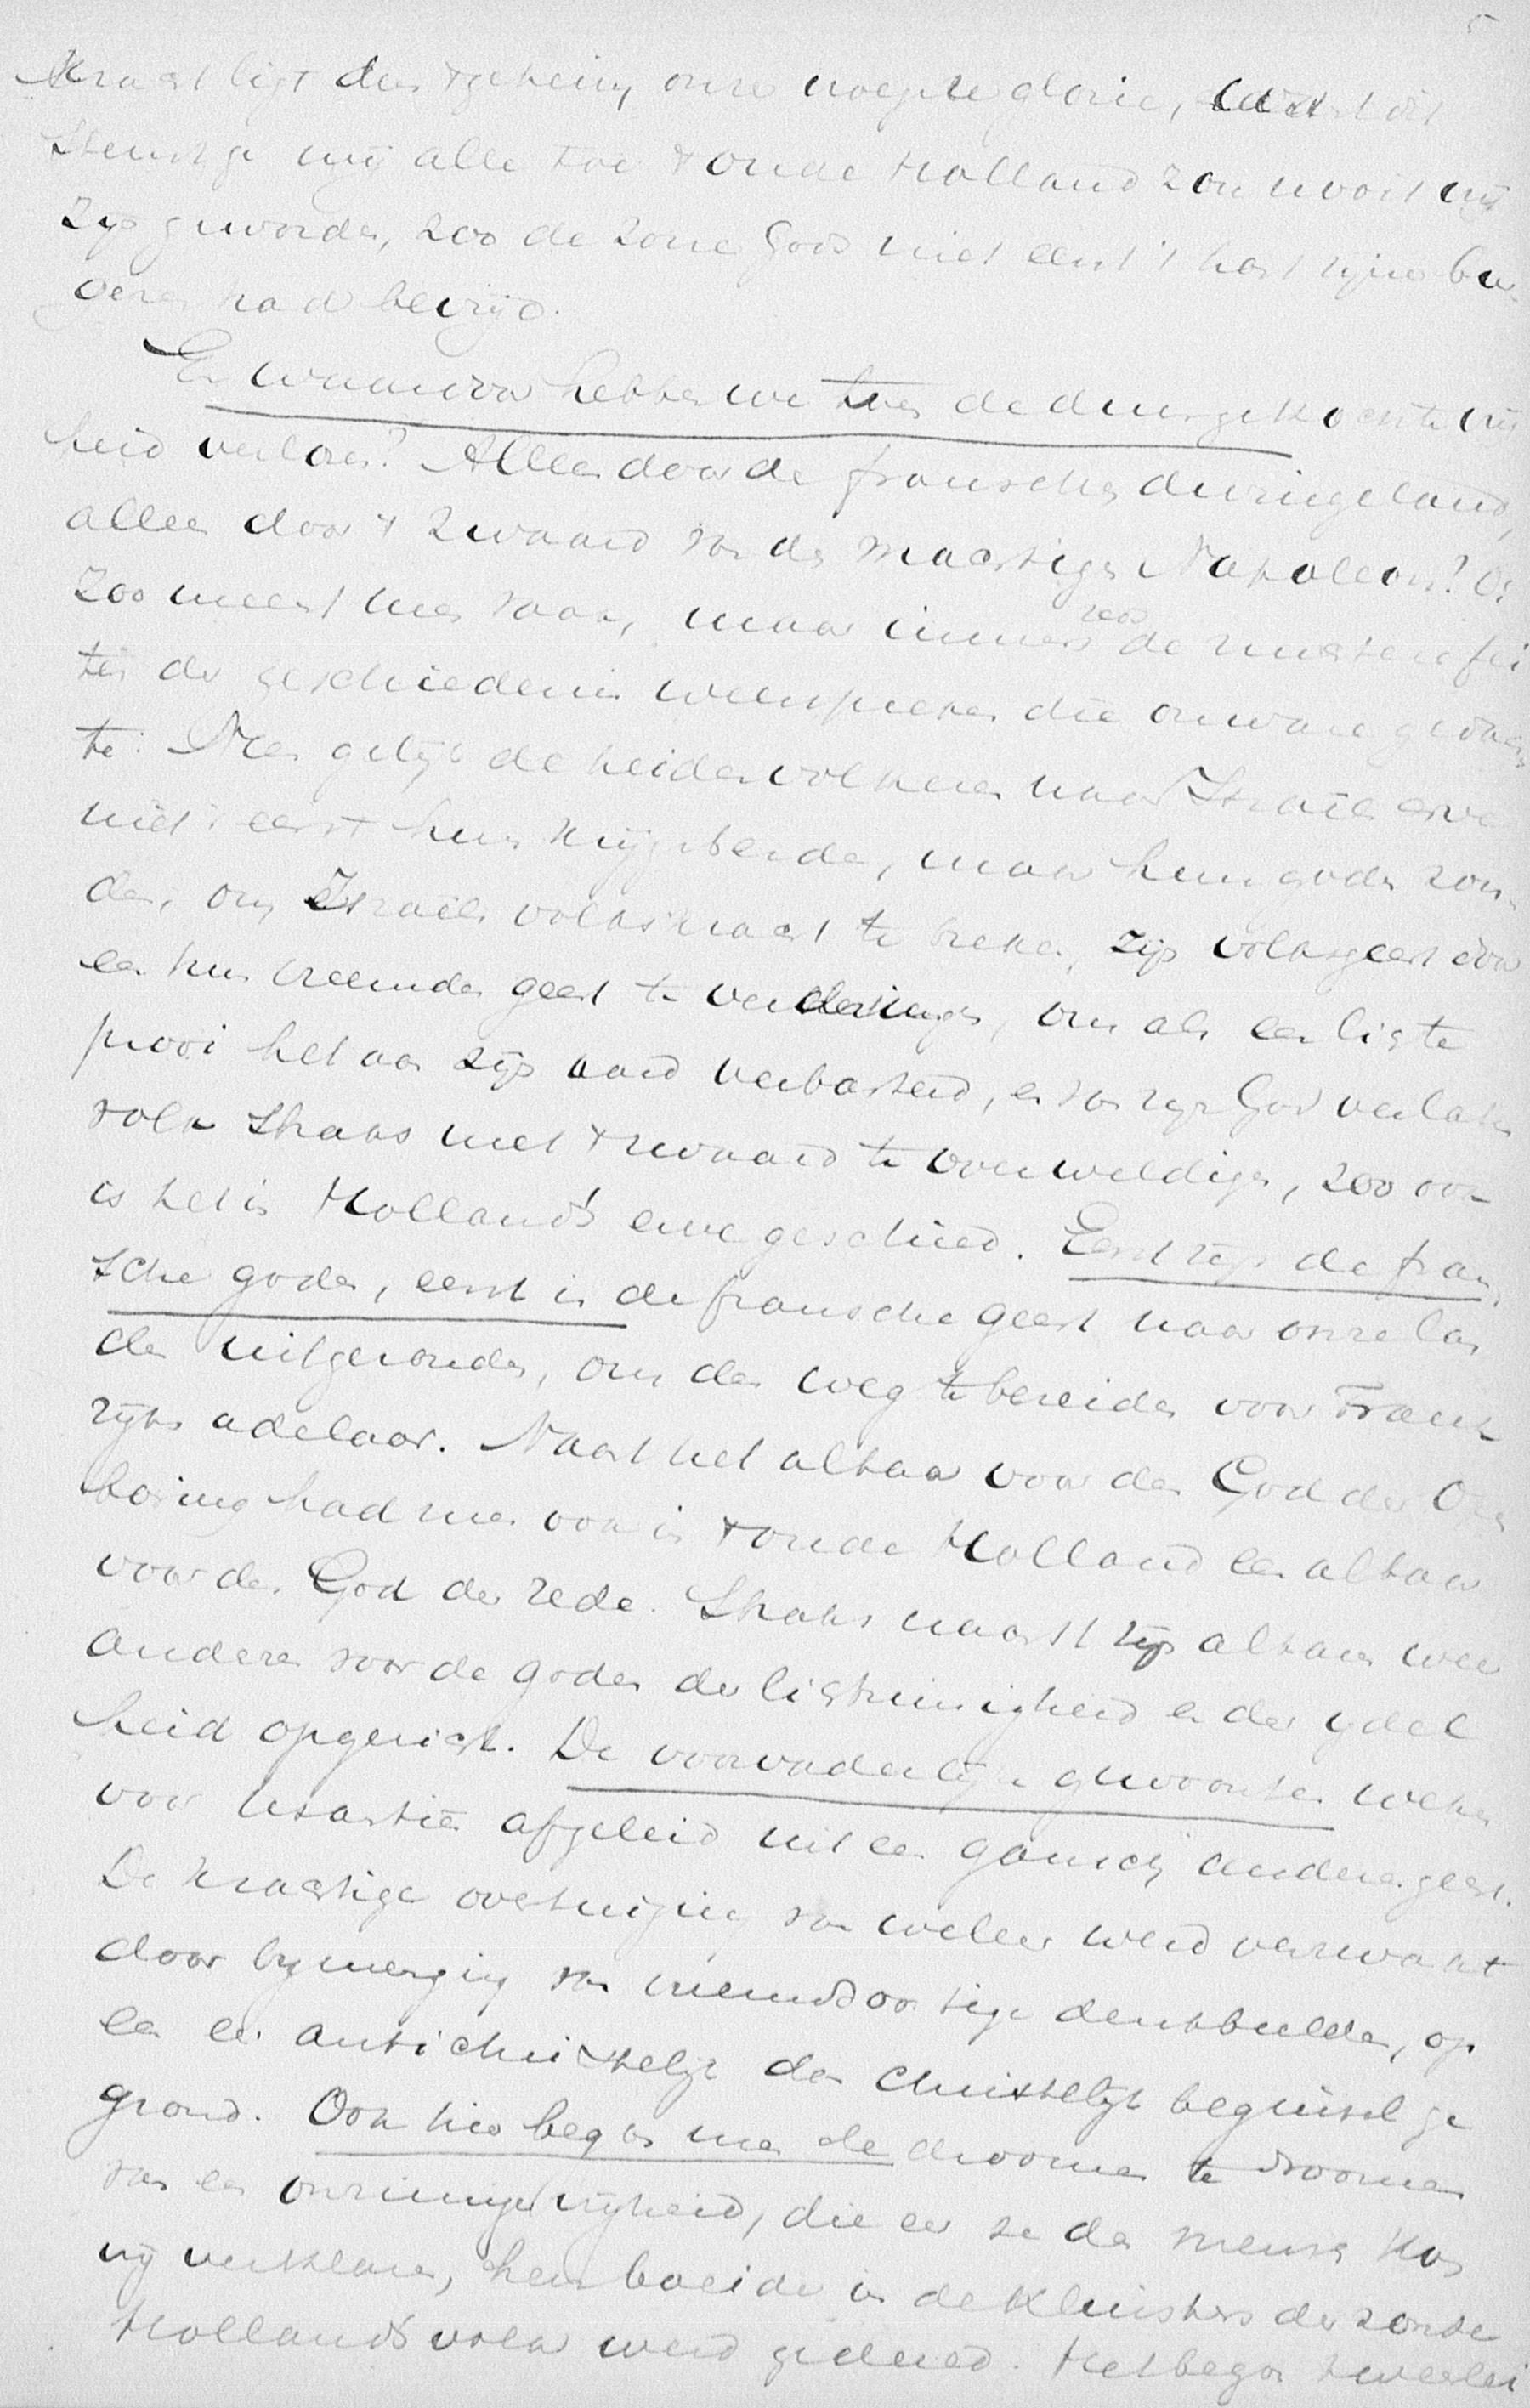 5
kracht ligt dus 't geheim onzer vroegere glorie, want dit
stemt ge mij alle toe 't oude Holland zou nooit vrij
zijn geworden, zoo de Zone Gods niet eerst 't hart zijner bur-
geren had bevrijd.
En waardoor hebben we toen de duurgekochte vrij
heid verloren? Alleen door de fransche dwingeland,
alleen door 't zwaard van den machtigen Napoleon? O!
zoo meent men vaak, maar immers reeds de nuchtere fei
ten der geschiedenis weerspreken die onware gedach
te. Neen gelijk de heidenvolkeren naar Israels erve
niet 't eerst hun krijgsbenden, maar hun goden zon-
den, om Israels volkskracht te breken, zijn volksgeest door
een hun vreemden geest te verdringen, om als een ligte
prooi het aan zijn aard verbasterd, en van zijn God verlaten
volk straks met 't zwaard te overweldigen, zoo ook
is het in Hollands erve geschied. Eerst zijn de fran-
sche goden, eerst is de fransche geest naar onze lan
den uitgezonden, om den weg te bereiden voor Frank
rijks adelaar. Naast het altaar voor den God der Open
baring had men ook in 't oude Holland een altaar
voor den God der rede. Straks naast zijn altaar weer
andere voor de goden der ligtzinnigheid en der ydel
heid opgericht. De voorvaderlijke gewoonten weken
voor usantiën afgeleid uit een gansch anderen geest.
De krachtige overtuiging van weleer werd verzwakt
door bymenging van vreemdsoortige denkbeelden, op
een en antichristelijk dan christelijk beginsel ge
grond. Ook hier begon men de droomen te droomen
van een onzinnige vrijheid, die eer ze den mensch kon
vrij verklaren, hem boeide in de kluisters der zonde
Hollands volk werd gedeeld. Het begon tweeërlei